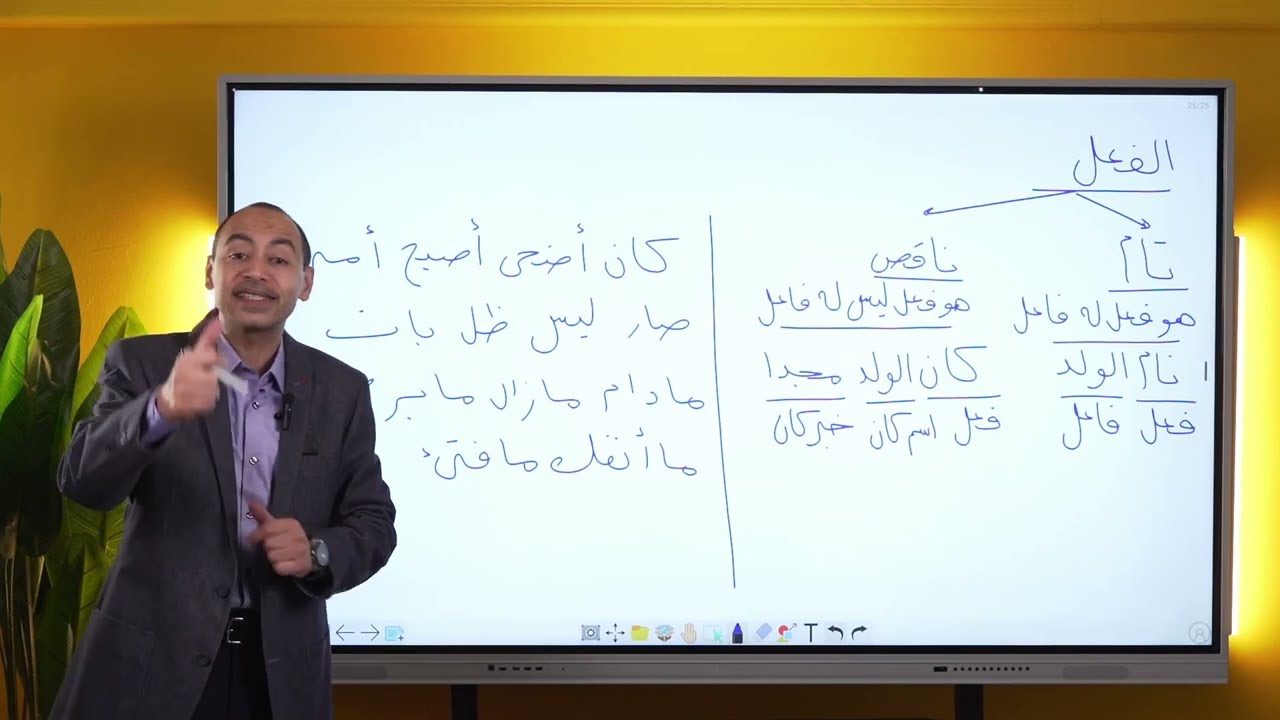 25/25
الفعل
تام
هو فعل له فاعل
نام الولد
فعل فاعل
ناقص
هو فعل ليس له فاعل
كان الولد مجدا
فعل اسم كان خبر كان
كان أضحى أصبح
صار ليس ظل بات
مادام مازال
ما أنفك ما فتئ
T